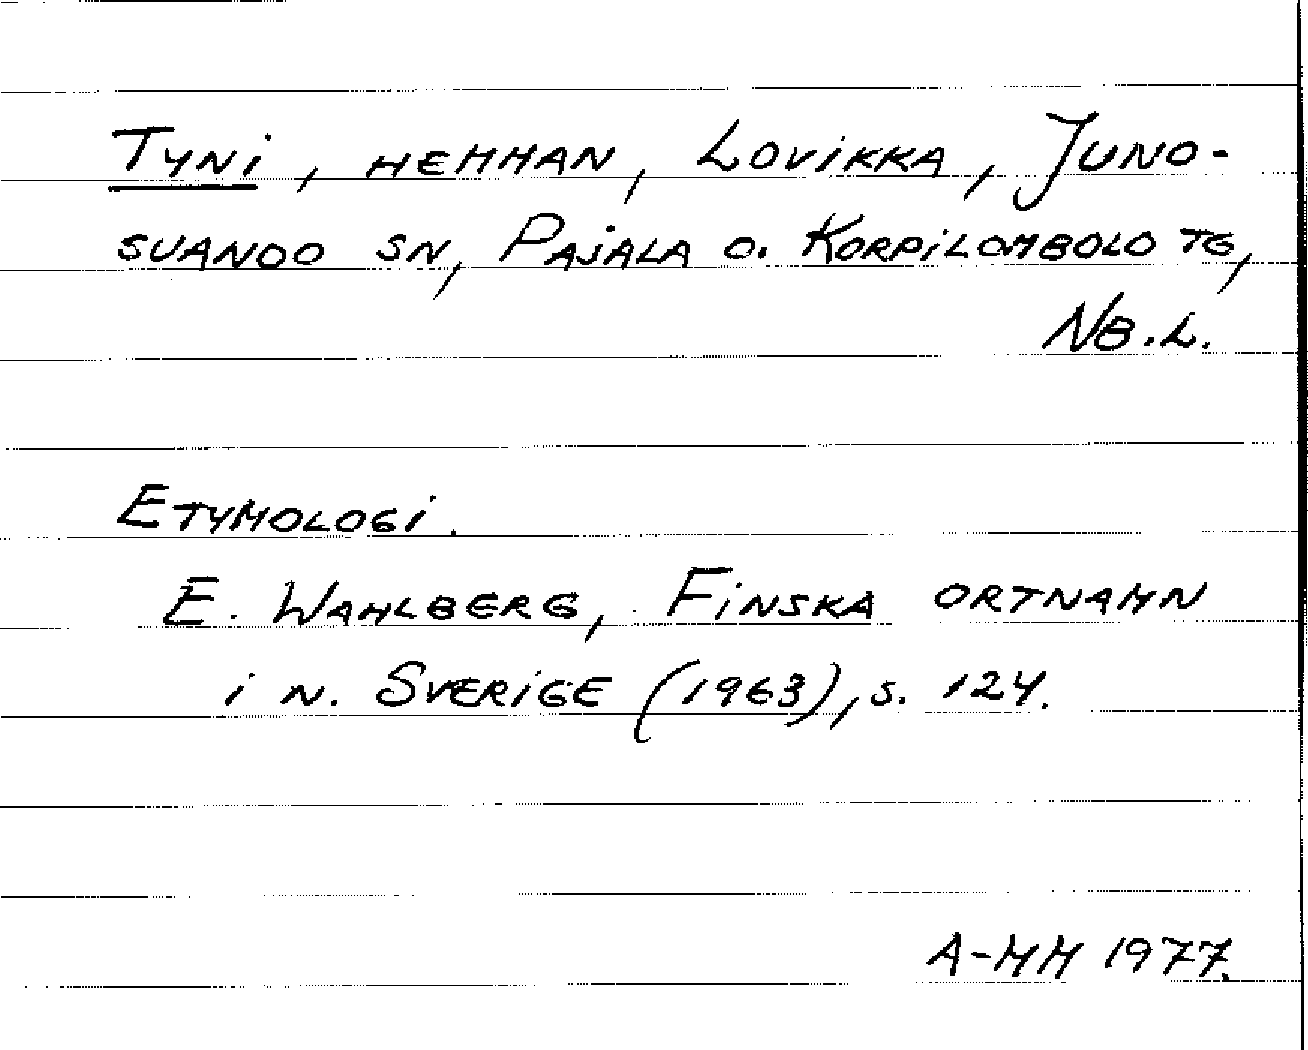 Tyni, hemman, Lovikka, Juno-
suando sn, Pajala o. Korpilombolo tg,
Nb.l.
Etymologi.
E. Wahlberg, Finska ortnamn
i n. Sverige (1963), s. 124.
A-MM 1977.